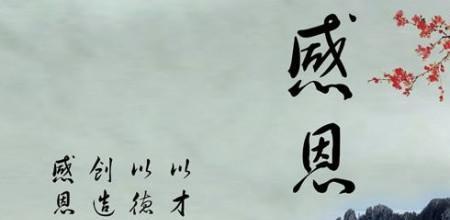 感恩
以才
以德
创造
感恩